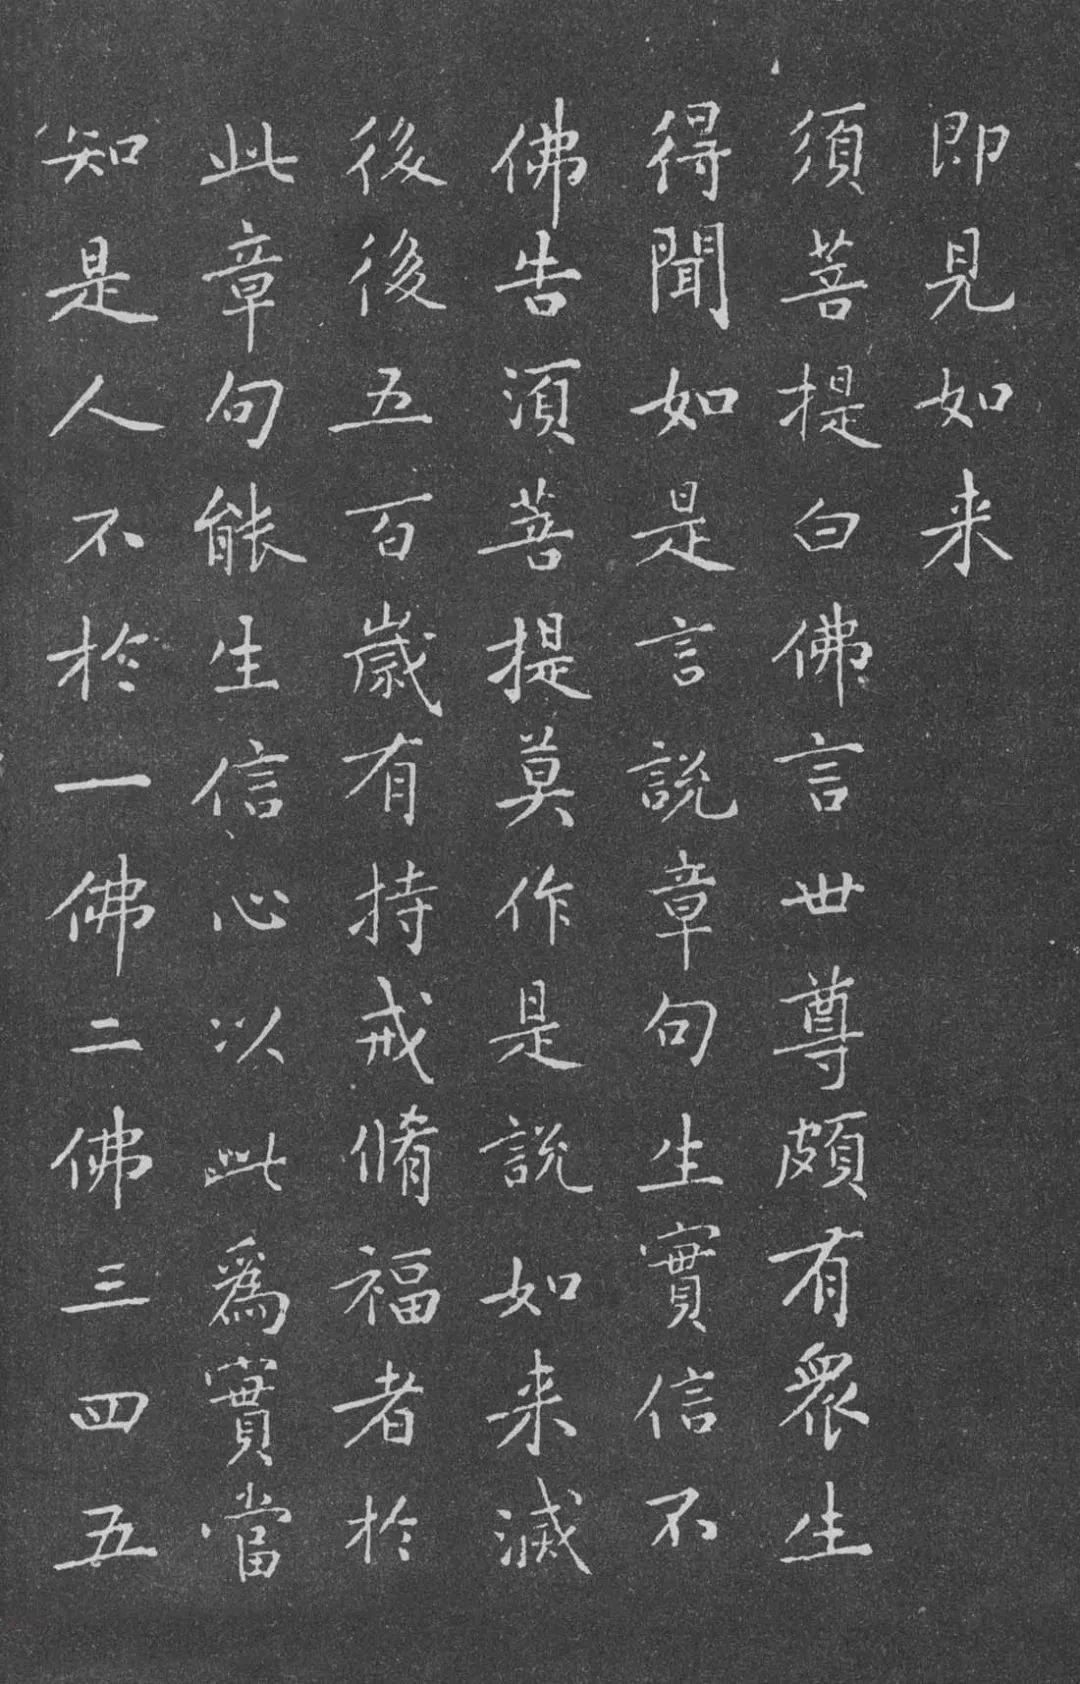 即見如来
須菩提白佛言世尊頗有眾生
得聞如是言說章句生實信不
佛告湏菩提莫作是說如来滅
後後五百歲有持戒脩福者於
此章句能生信心以此為實當
知是人不於一佛二佛三四五